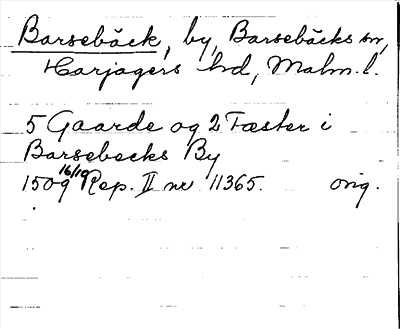 Barsebäck, by, Barsebäcks sn,
Harjagers hd, Malm. l.
5 Gaarde og 2 Fæster i
Barsebecks By
1509 16/10 Rep. II nr 11365. orig.